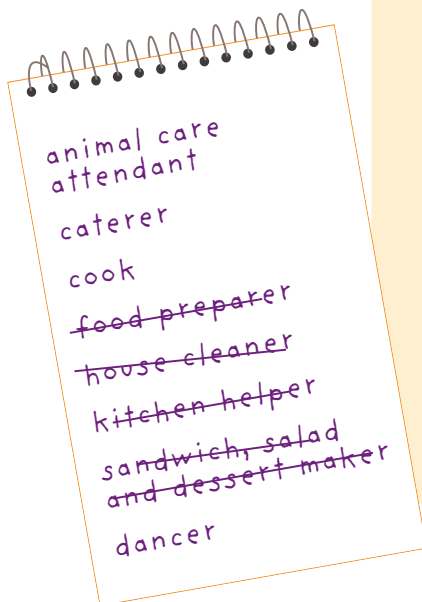 animal care
attendant
caterer
cook
food preparer
house cleaner
kitchen helper
sandwich, salad
and dessert maker
dancer